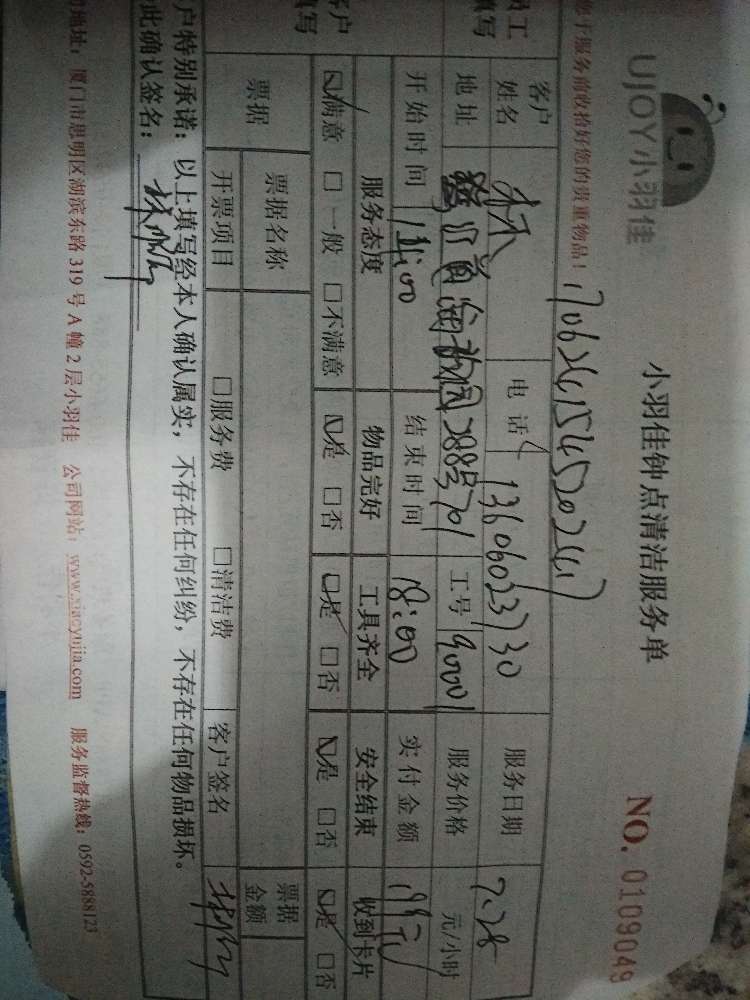 UJOY小羽佳
小羽佳钟点清洁服务单
NO. 0109049
于服务前收拾好您的贵重物品！
客户姓名 林 电话 13606023730 服务日期 7.28
地址 288号701 工号 90001 服务价格 元/小时
开始时间 结束时间 18:00 实付金额
服务态度 物品完好 工具齐全 安全结束 收到卡片
☑满意 □一般 □不满意 ☑是 □否 ☑是 □否 ☑是 □否 ☑是 □否
票据 票据名称 票据金额
开票项目 □服务费 □清洁费 客户签名
户特别承诺：以上填写经本人确认属实，不存在任何纠纷，不存在任何物品损坏。
此确认签名：
地址：厦门市思明区湖滨东路 319 号 A 幢 2 层小羽佳 公司网站：www.xiaoyujia.com 服务监督热线：0592-5888123